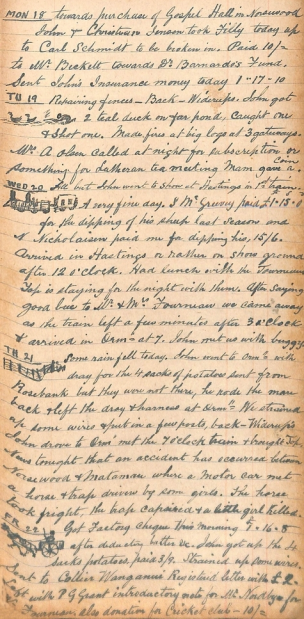 MON 18 towards purchase of Gospel Hall in Norsewood
John & Christian Jensen took Filly today up
to Carl Schmidt to be broken in. Paid 10/-
to Mr Beckett towards Dr Barnardos Fund.
Sent John's Insurance money today 1-17-10
TU 19 Repairing fences - Back - Widerups. John got
2 teal duck on far pond. Caught one
& Shot one. Made fires at big logs at 3 gateways.
Mr A Olsen called at night for subscription or
something for Lutheran tea meeting Mam gave a Coin
WED 20 All but John went to Show at Hastings in 1st train.
A very fine day. J Mc Greevy paid £1-15-0
for the dipping of his sheep last season and
N Nicholaisen paid me for dipping his, 15/6.
Arrived in Hastings or rather on Show ground
after 12 o'clock. Had lunch with the Fourneau
is staying for the night with them. After saying
good bye to Mr & Mrs Fourneau we came away
as the train left a few minutes after 3 o'clock
& arrived in Orm- at 7. John met us with buggy
TH 21 Some rain fell today. John went to Ormd with
dray for the 4 sacks of potatoes sent from
Rosebank but they were not there, he rode the mare
back & left the dray & harness at Ormd. We strained
up some wires & put in a few posts, back - Widerup's
John drove to Ormd met the 7 o'clock train & brought
News tonight that an accident has occurred between
Norsewood & Matamau where a Motor car met
a horse & trap driven by some girls. The horse
took fright, the trap capsized & a little girl killed.
FR 22 Got Factory cheque this morning £-16-8
after deducting butter &c. John got up the 4
sacks potatoes paid 3/9. Strained up some wires.
Sent to Collier Wanganui Registered letter with £2
with P G Grant introductory note for Mr
also donation for Cricket club - 10/=